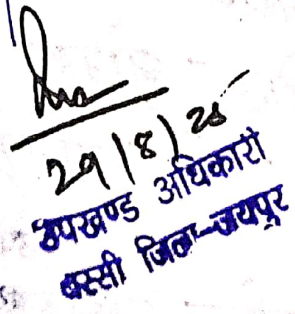 29/8/25
उपखण्ड अधिकारी
बस्सी जिला-जयपुर